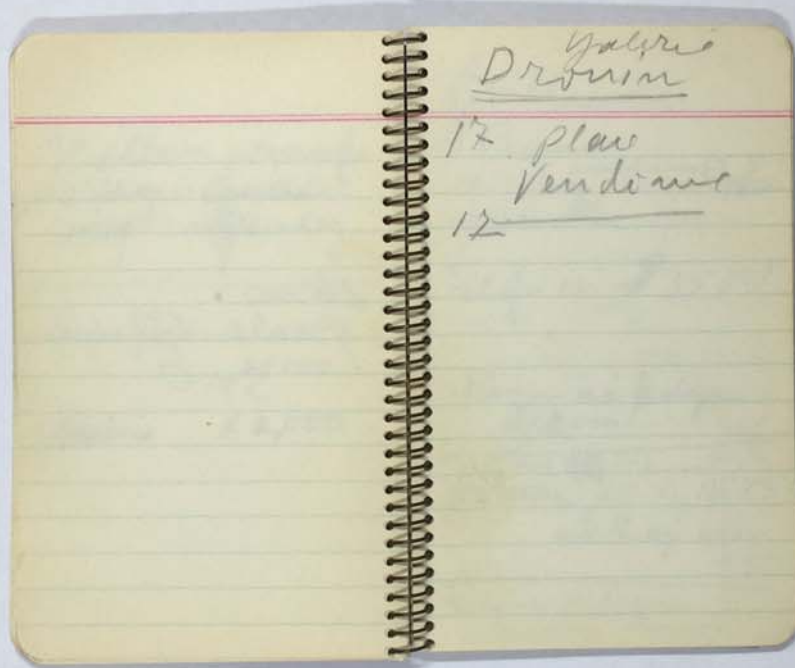 Galerie
Drouin
17 Place
Vendôme
17